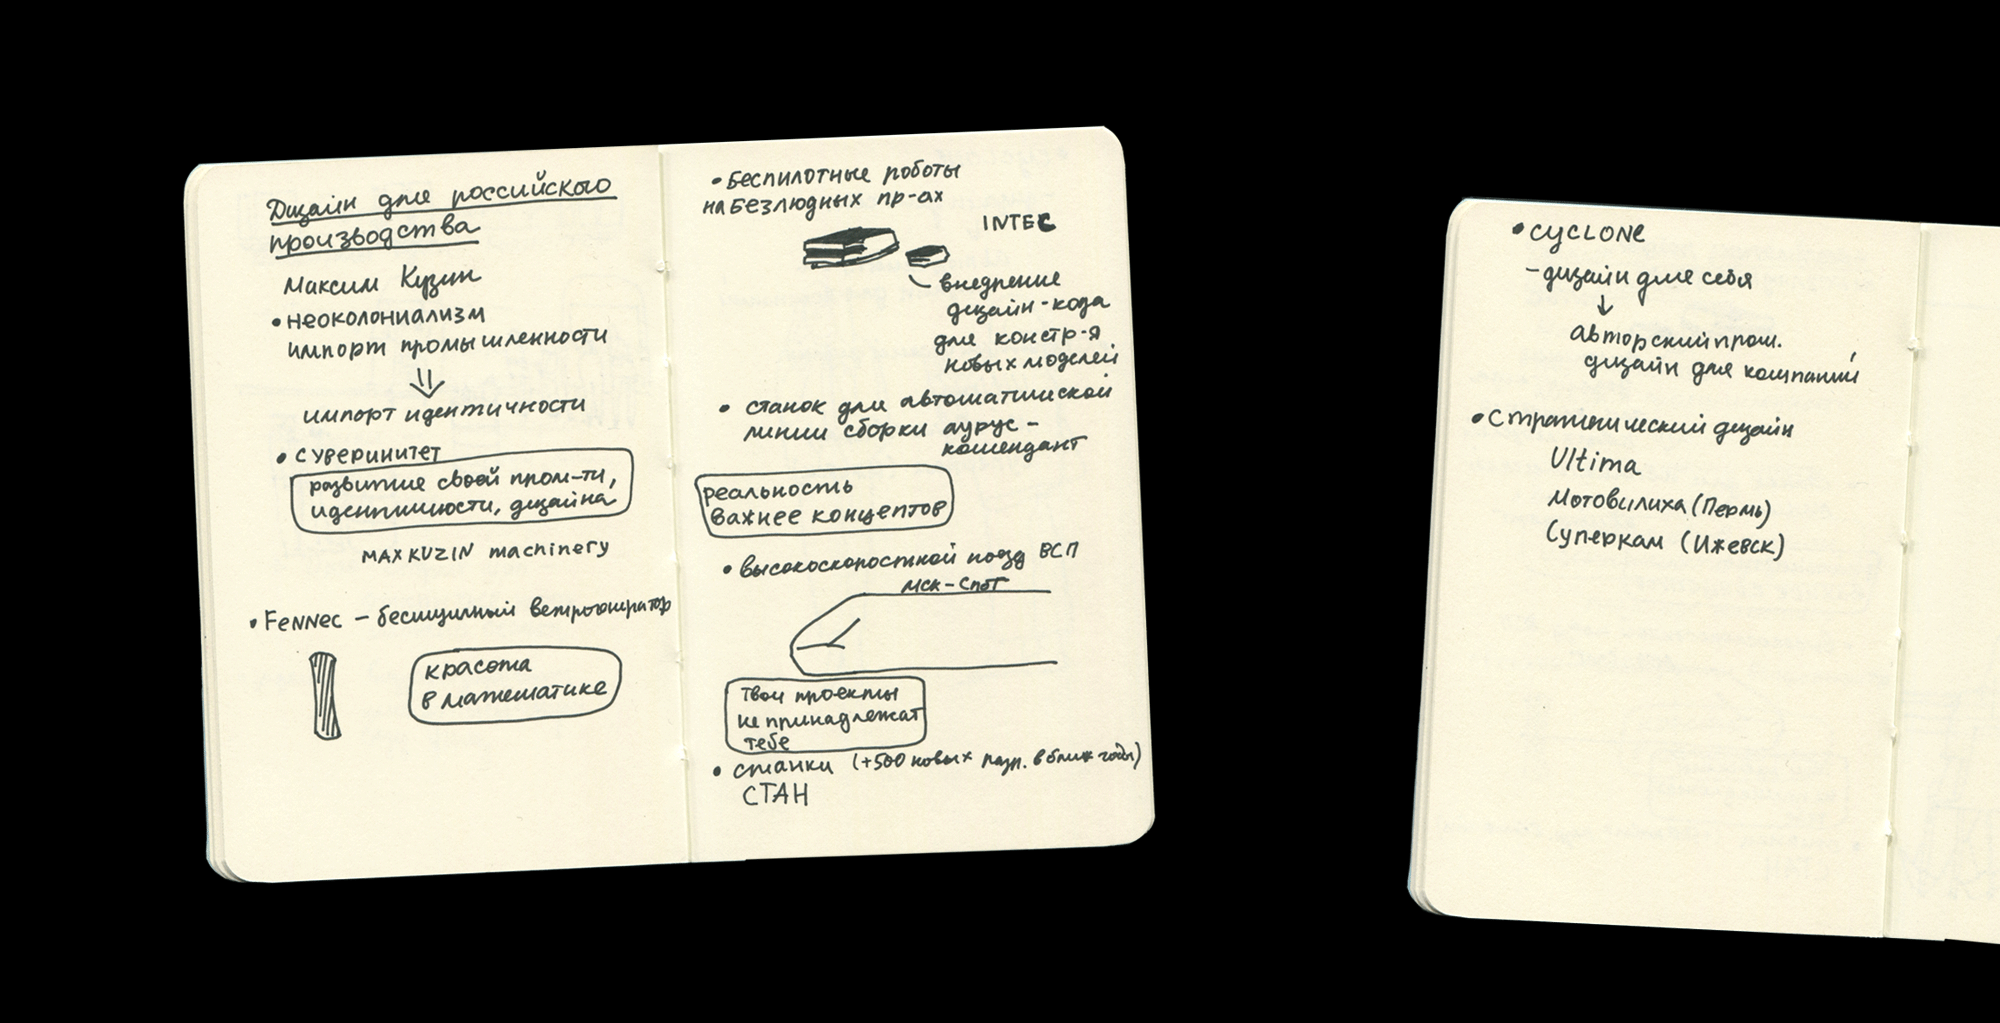 Дизайн для российского
производства
Максим Кузин
• неоколониализм
импорт промышленности
импорт идентичности
• суверинитет
развитие своей пром-ти,
идентичности, дизайна
MAX KUZIN machinery
• FeNNec – бесшумный ветрогенератор
красота
в математике
• Беспилотные роботы
на безлюдных пр-ах
INTEC
внедрение
дизайн-кода
для констр-я
новых моделей
• станок для автоматической
линии сборки аурус –
комендант
реальность
важнее концептов
• высокоскоростной поезд ВСП
МСК – СПбГ
Твои проекты
не принадлежат
тебе
• станки (+500 новых разр. в ближ годы)
СТАН
• CYCLONE
– дизайн для себя
авторский пром.
дизайн для компаний
• Стратегический дизайн
Ultima
Мотовилиха (Пермь)
Суперкам (Ижевск)